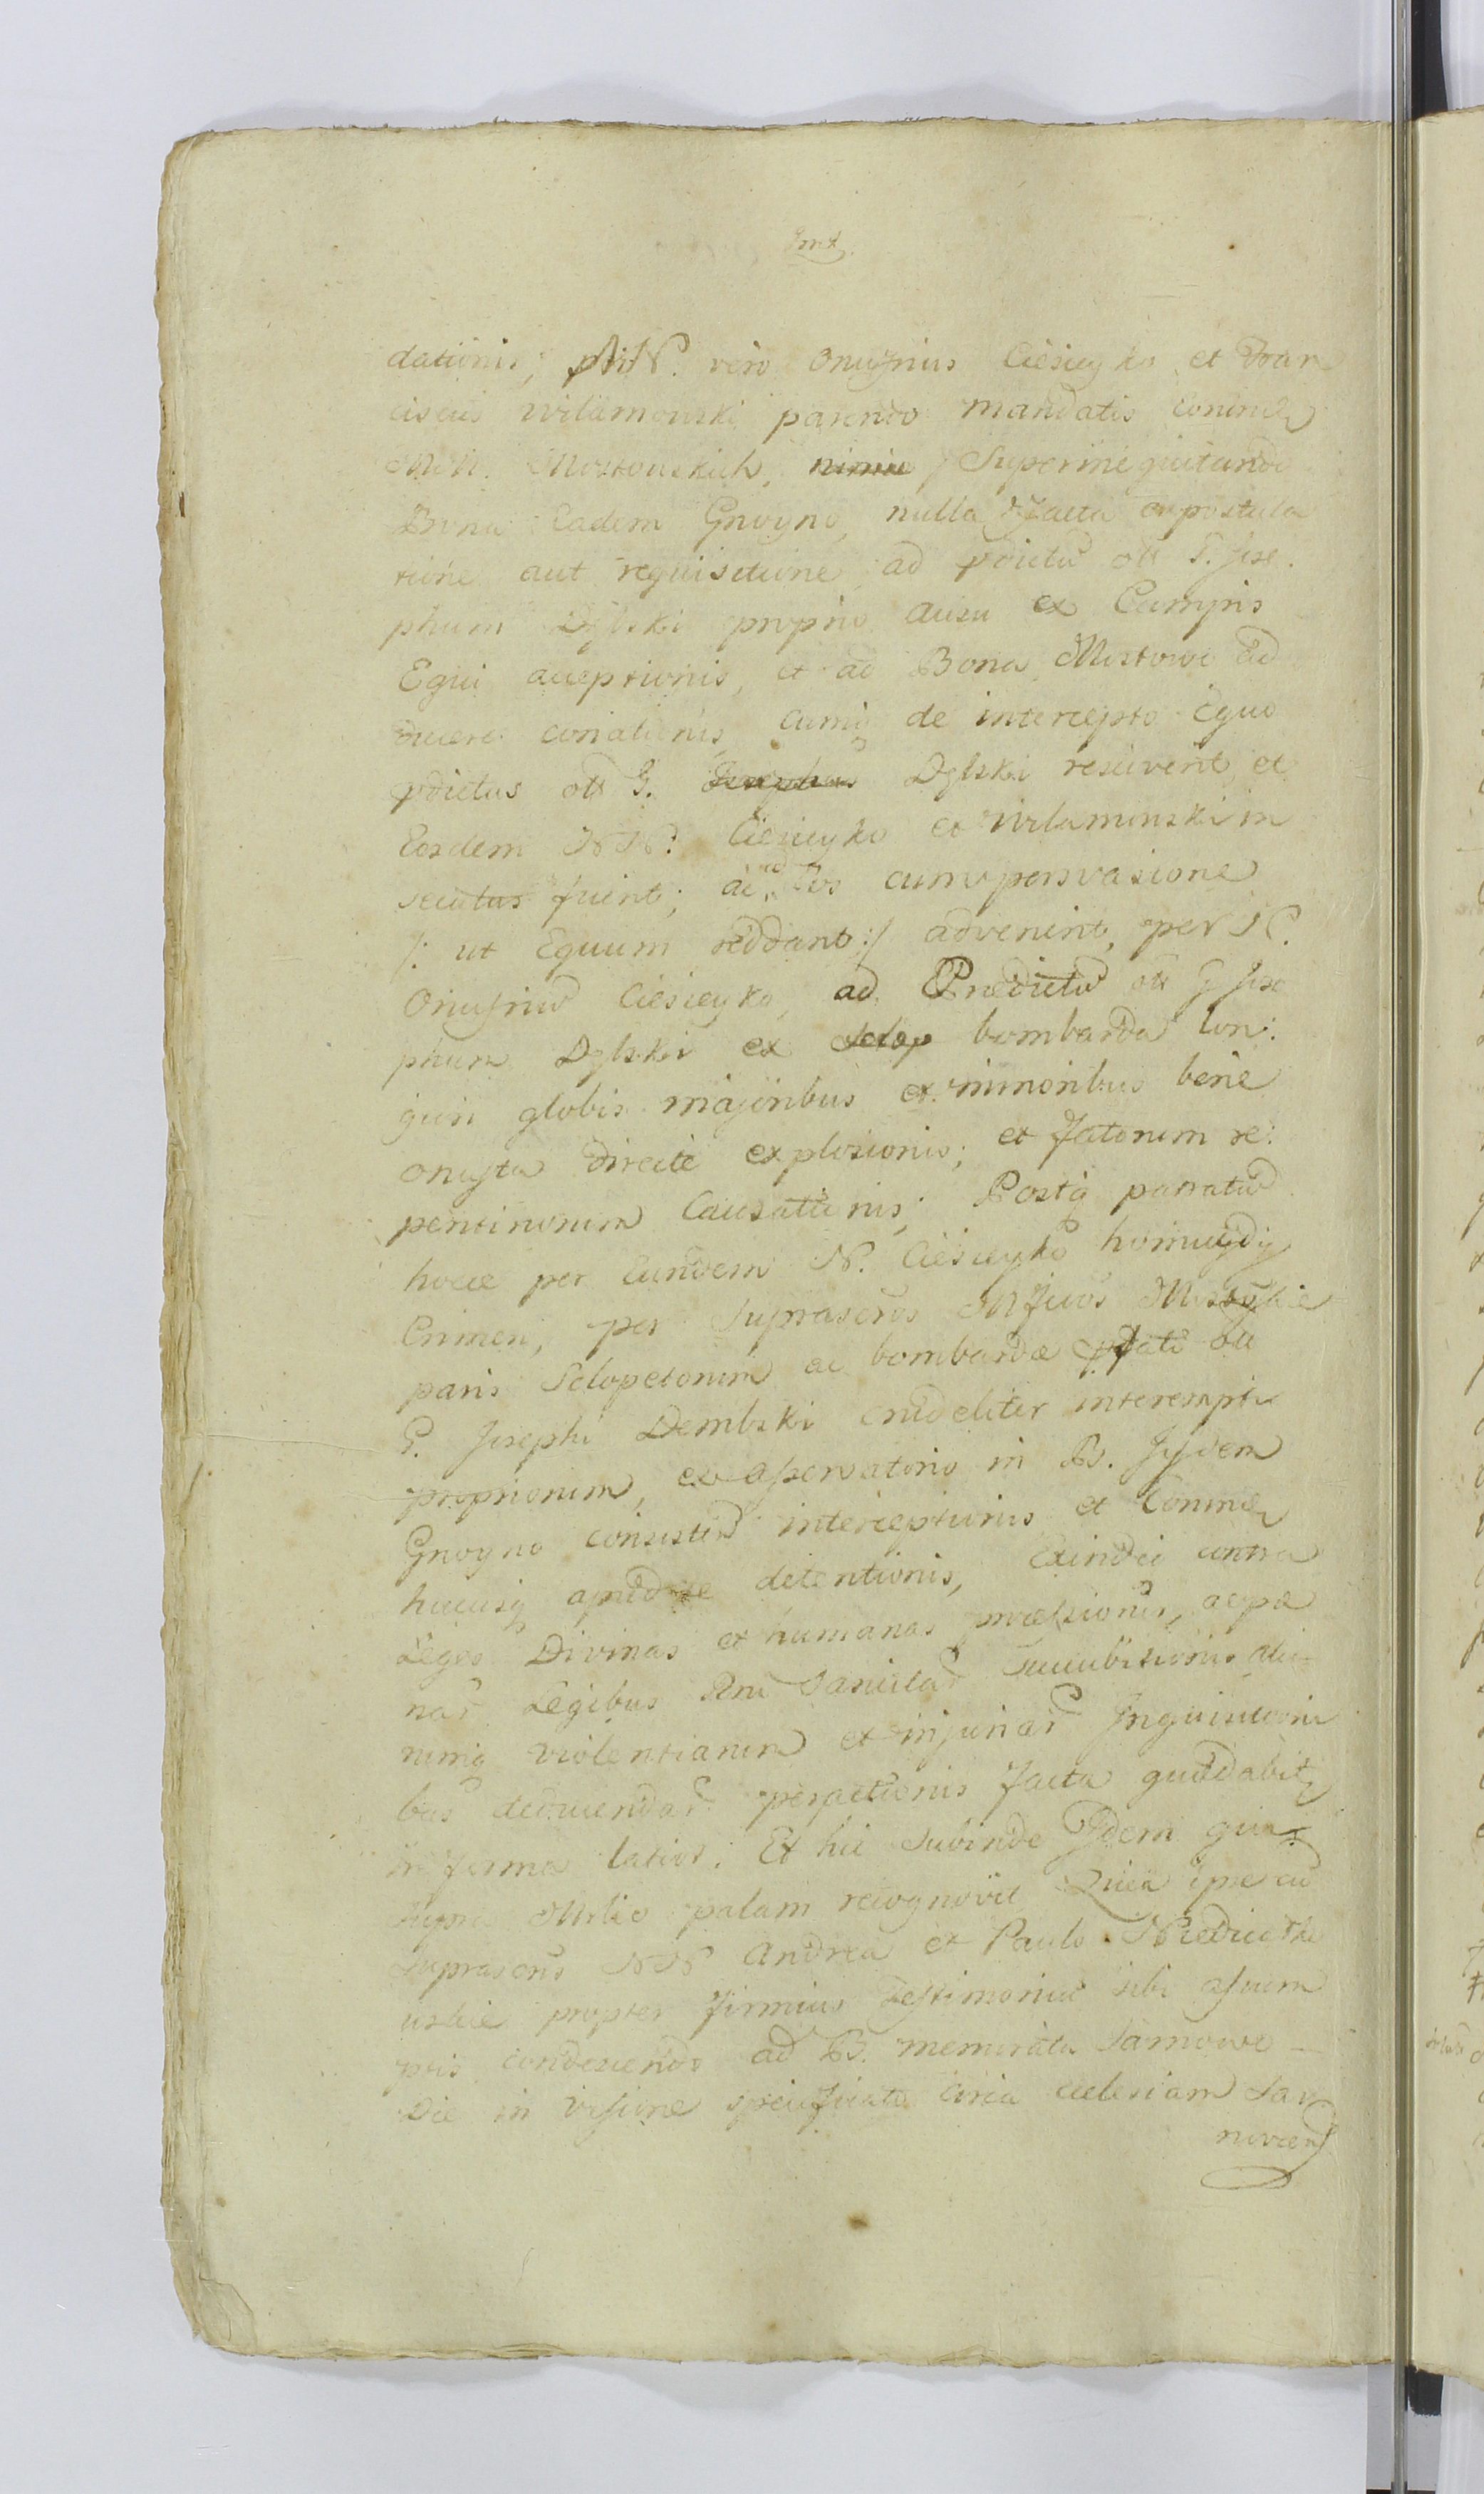 dationis; NN. vero Onufrius Ciesieyko et Fran
ciscus Wilamowski parendo mandatis
MM. Mostowskich, nimie Superinequitando
Bona Eadem Gnoyno, nulla facta expostula
tione aut requisitione ad pdictũ olĩ G. Jose.
phum Dębski proprio ausu ex Campis
Equi acceptionis, et ad Bona Mostowo ad
ducere conationis, cumq de intercepto Equo
pdictus olĩ G. Josephus Dębski resciverit, et
Eosdem NN: Ciesieyko et Wilamowski in
secutus fuerit; ac ad Eos cum persvasione
/: ut Equum reddant :/ advenerit, per N.
Onufriũ Ciesieyko, ad Praedictũ olĩ G Jose
phum Dębski ex Sclop bombarda lon:
giori globis majoribus et minoribus bene
onusta directe explosionis; et Fatorum re:
pentinorum Causationis; Postq patratũ
hocce per Eundem N. Ciesieyko homicydij
Crimen, per Suprascrõs Mficõs Mostowskie
paris Sclopetorum ac bombardae pfati olĩ
G. Josephi Dembski crudeliter interempti
propriorum, ex asservatorio in B. Jisdem
Gnoyno consistẽn interceptionis et
hucusq apud se detentionis, Exindeq contra
Leges Divinas et humanas processionis, ac
nar Legibus Rni Sancitar Succubitionis alia
rumq violentiarum et injuriar Inquisitioni
bus deducendar peractionis facta quaedabit
in forma latior. Et hic Subinde Idem qui
supra Mlis palam recognovit Quia ipse cũ
suprascris NN Andrea et Paulo
propter firmius Testimoniũ sibi assum
ptis condescendo ad B. memorata Sarnowo
Die in visione specificata circa ecclesiam Sar
novien